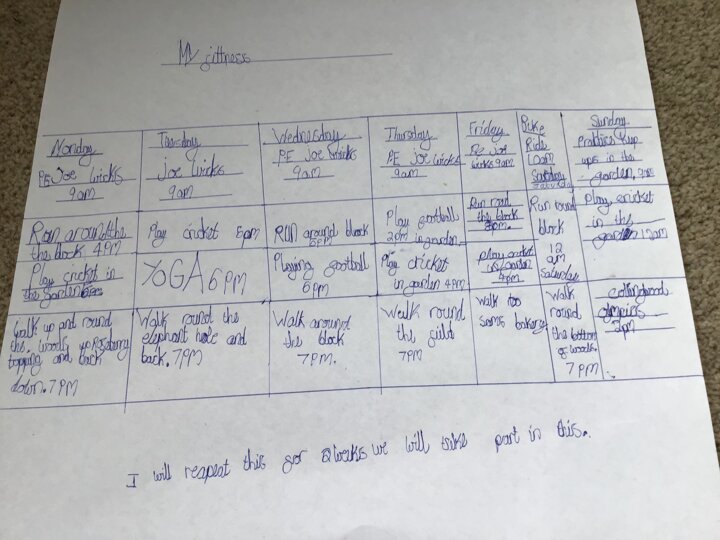 My fittness
Monday
PE Joe wicks
9am
Tuesday
Joe wicks
9am
Wednesday
PE Joe wicks
9am
Thursday
PE Joe wicks
9am
Friday
PE Joe
wicks 9am
Bike
Ride
10am
Saturday
Sunday
Practice keep
ups in the
garden,
Run around the
the block 4PM
Play cricket 5pm
RUN around block
5PM
Play football
2pm in garden
Run road
the block
Run round
block
12
am
Saturday
Play cricket
in the
garden 12am
Play cricket in
the garden
YOGA 6pm
Playing football
6pm
Play cricket
in garden 4pm
Play cricket
in garden
4pm
Walk up and round
the woods up Roseberry
topping and back
down. 7PM
Walk round the
elephant hole and
back. 7PM
Walk around
the block
7PM.
Walk round
the field
7PM
walk too
sams bakery
Walk
round
the bottom
of woods.
7PM.
collingwood
olmpics
2pm
I will respeat this for 2weeks we will take part in this.